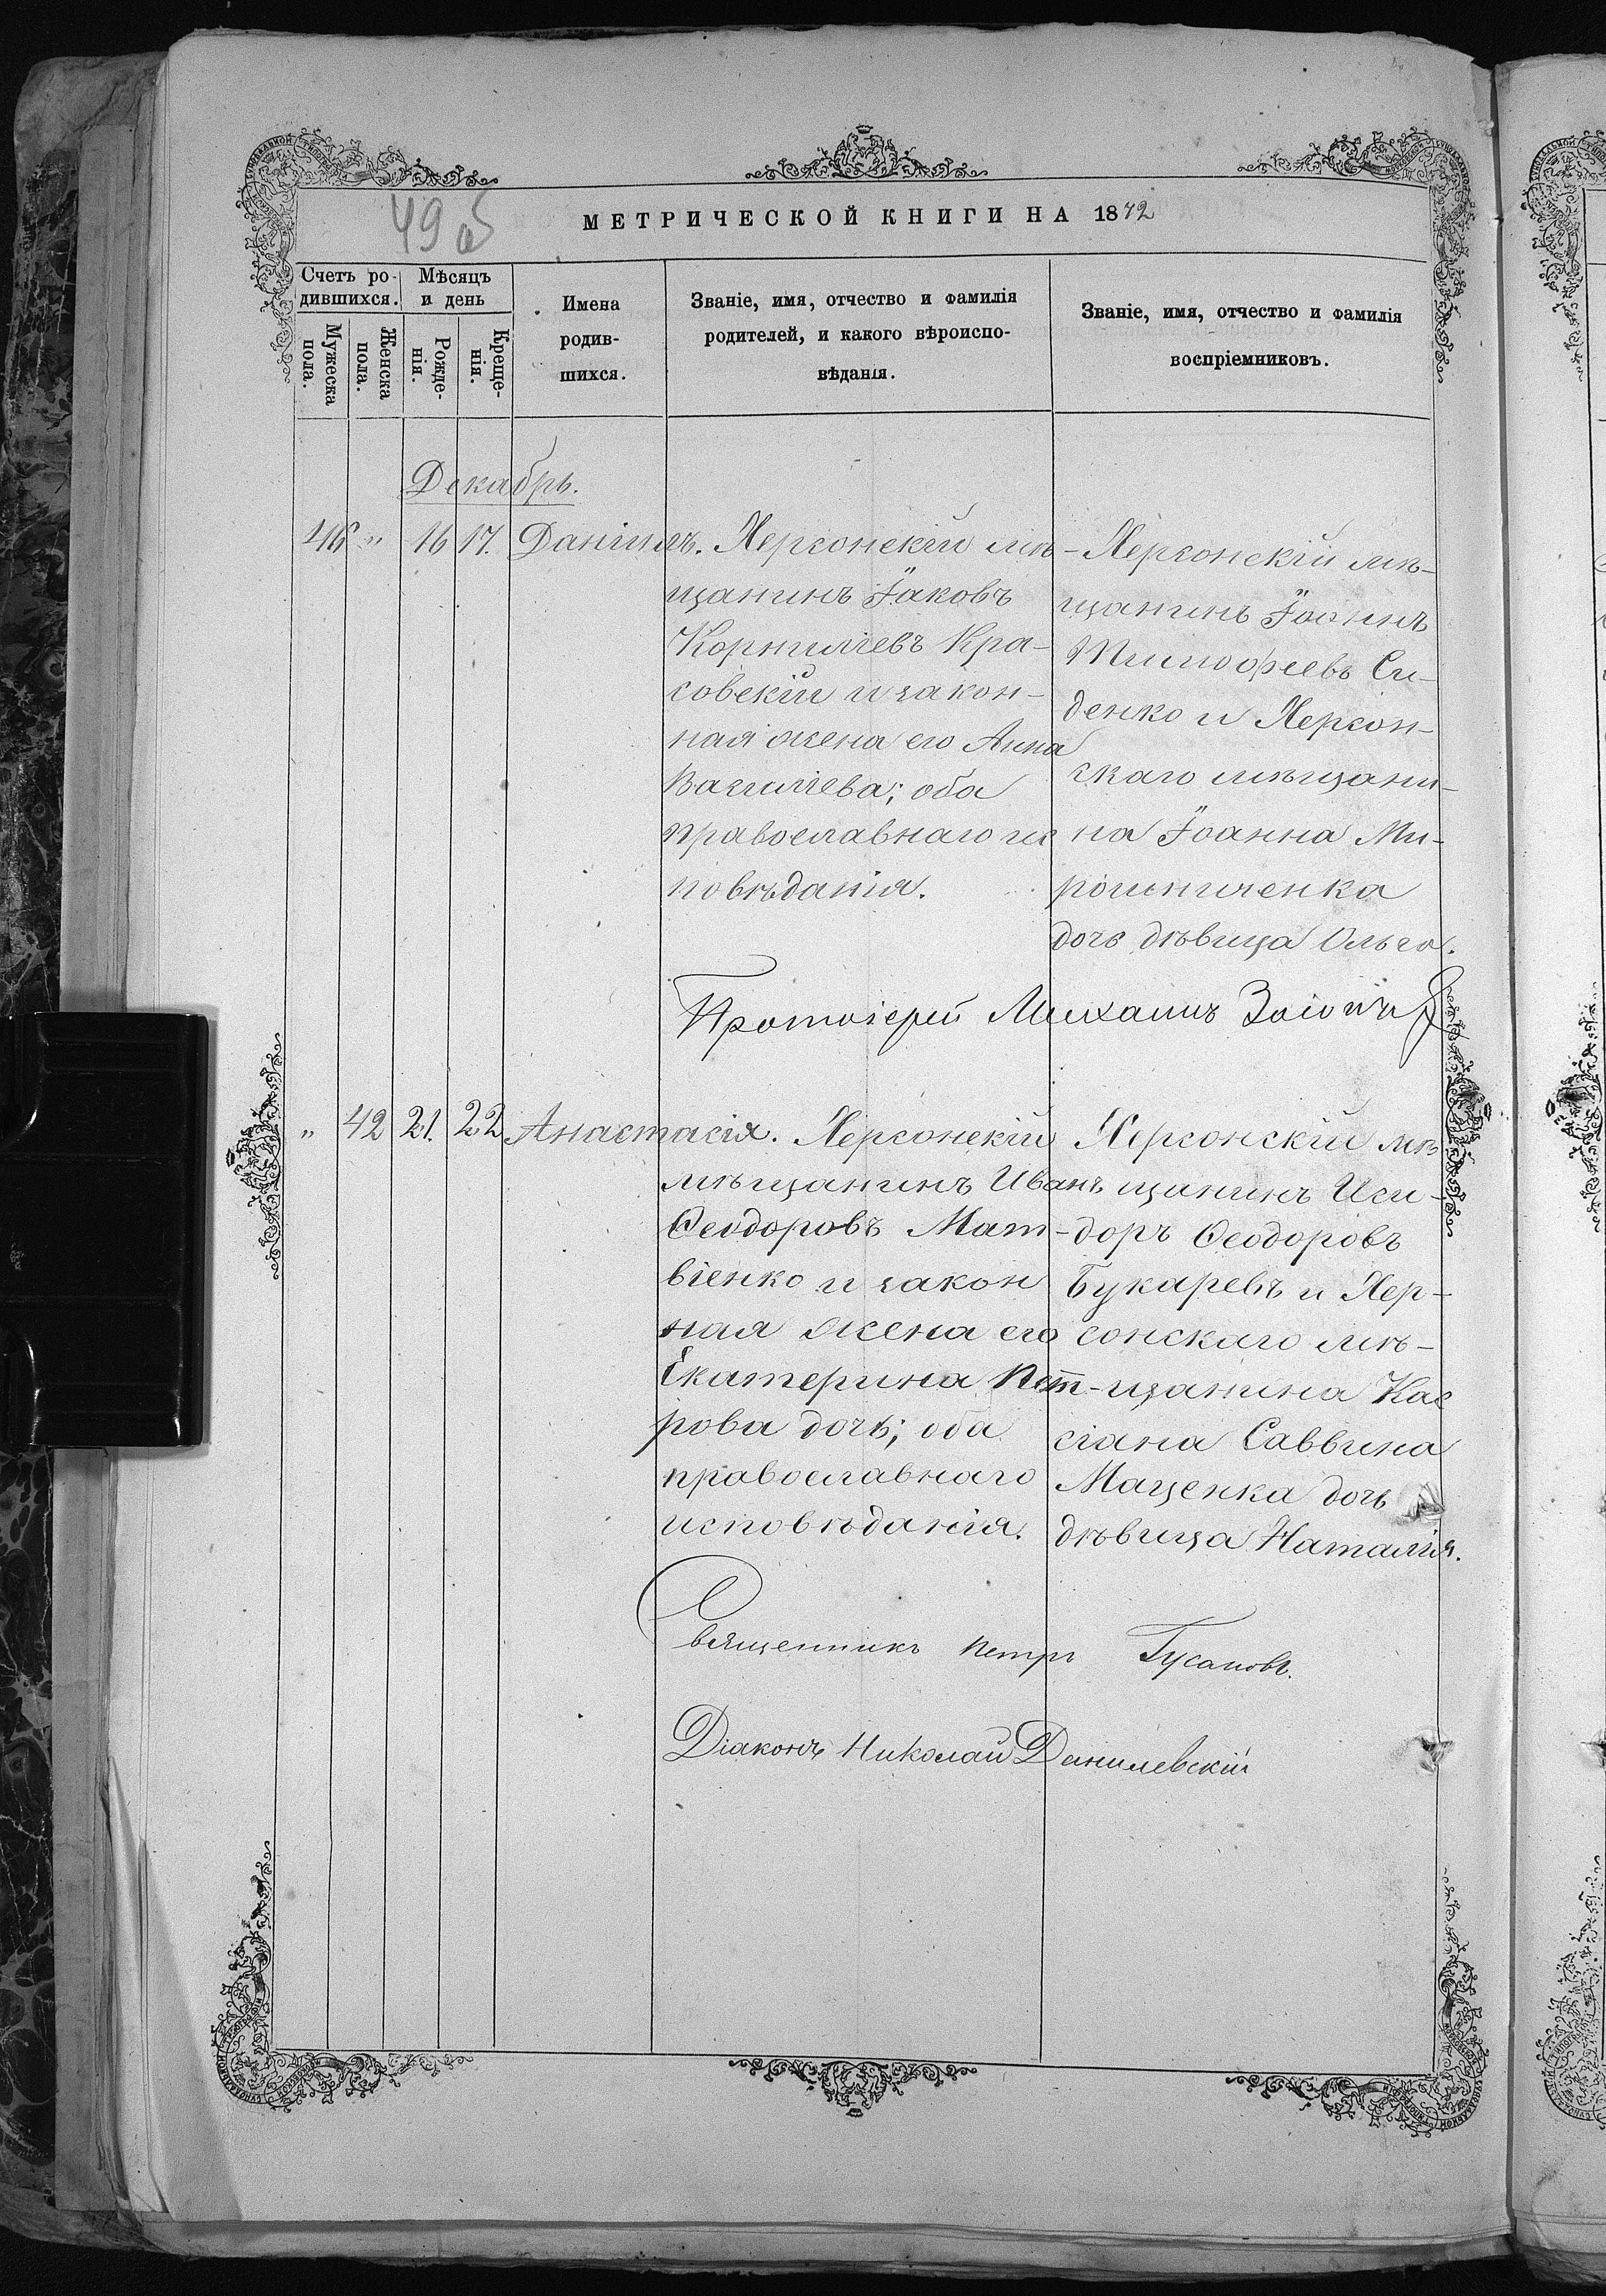 49 об
МЕТРИЧЕСКОЙ КНИГИ НА 1872
Счетъ ро-
дившихся.
Мѣсяцъ
и день
Мужеска
пола.
Женска
пола.
Рожде-
нія.
Креще-
нія.
Имена
родив-
шихся.
Званіе, имя, отчество и фамилія
родителей, и какого вѣроиспо-
вѣданія.
Званіе, имя, отчество и фамилія
воспріемниковъ.
Декабрь.
" 16 17. Даніилъ.
Херсонскій мѣ-
щанинъ Іаковъ
Корниліевъ Кра-
совскій и закон-
ная жена его Анна
Василіева; оба
православнаго ис
повѣданія.
Херсонскій мѣ-
щанинъ Іоаннъ
Тимофеевъ Си-
денко и Херсон-
скаго мѣщани-
на Іоанна Ми-
рошниченка
дочь дѣвица Ольга.
Протоіерей Михаилъ
" 42 21. 22 Анастасія.
Херсонскій
мѣщанинъ Иванъ
Ѳеодоровъ Мат-
віенко и закон
ная жена его
Екатерина Пет-
рова дочь; оба
православнаго
исповѣданія.
Херсонскій мѣ
щанинъ Иси-
доръ Ѳеодоровъ
Букаревъ и Хер-
сонскаго мѣ-
щанина Кас
сіана Саввина
Маценка дочь
дѣвица Наталія.
Священникъ Петръ Гусаковъ.
Діаконъ Николай Данилевскій